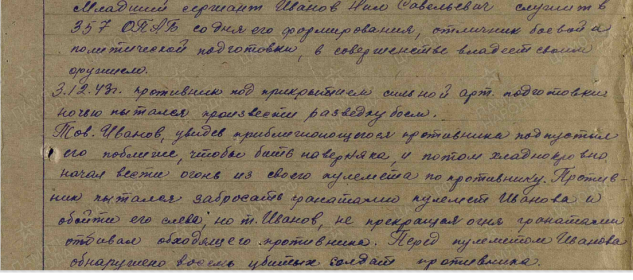 Младший сержант Иванов Нил Савельевич служит в
357 ОПАБ со дня его формирования, отличник боевой и
политической подготовки, в совершенстве владеет своим
оружием.
3.12.43г. противник под прикрытием сильной арт. подготовки
ночью пытался произвести разведку боем.
Тов. Иванов, увидев приближающегося противника подпустил
его поближе, чтобы бить наверняка, и потом хладнокровно
начал вести огонь из своего пулемета по противнику. Против-
ник пытался забросать гранатами пулемет Иванова и
обойти его слева, но т. Иванов, не прекращая огня гранатами
отбивал обходящего противника. Перед пулеметом Иванова
обнаружено восемь убитых солдат противника.